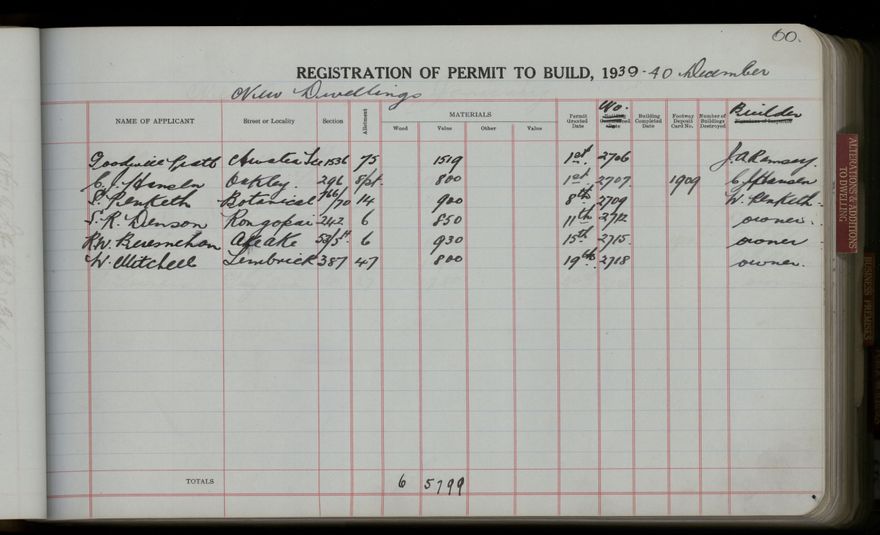 60.
REGISTRATION OF PERMIT TO BUILD, 1939-40 December
New Dwellings
NAME OF APPLICANT Street or Locality Section Allotment MATERIALS Wood Value Other Value Permit Granted Date No. Building Completed Date Footway Deposit Card No. Number of Buildings Destroyed Builder
1536 75 1519 1st 2706 J.A. Ramsey.
C.J. Hansen Oakley. 296 800 1st 2707. 1909 C J Hansen
S. Penketh Botanical 14 900 8th 2709 W. Penketh.
S.R. Denson Rongopai 242 6 850 11th 2712 owner.
Aheahe 6 930 15th 2715. owner
W. Mitchell Limbrick 387 47 800 19th 2718 owner.
TOTALS 6 5799
ALTERATIONS & ADDITIONS
TO DWELLING
BUSINESS PREMISES